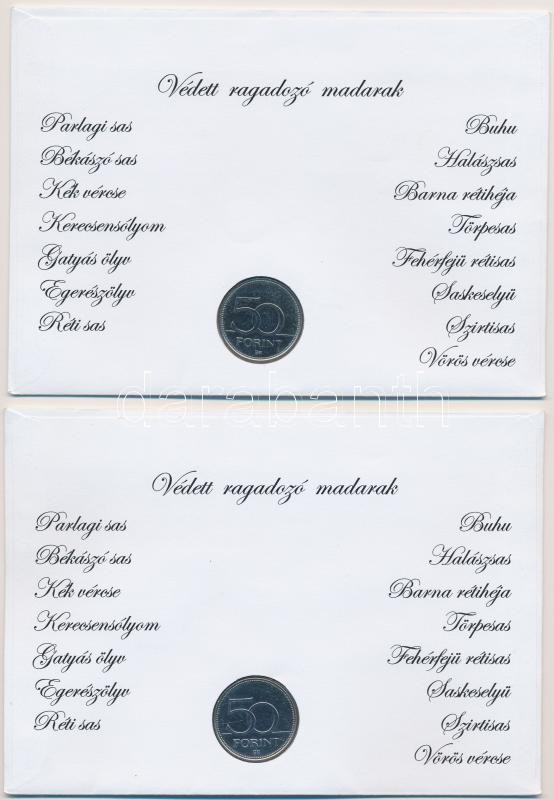 Védett ragadozó madarak
Parlagi sas
Békászó sas
Kék vércse
Kerecsensólyom
Gatyás ölyv
Egerészölyv
Réti sas
Buhu
Halászsas
Barna rétihéja
Törpesas
Fehérfejü rétisas
Saskeselyü
Szirtisas
Vörös vércse
50
FORINT
BP.
darabanth
Védett ragadozó madarak
Parlagi sas
Békászó sas
Kék vércse
Kerecsensólyom
Gatyás ölyv
Egerészölyv
Réti sas
Buhu
Halászsas
Barna rétihéja
Törpesas
Fehérfejü rétisas
Saskeselyü
Szirtisas
Vörös vércse
50
FORINT
BP.